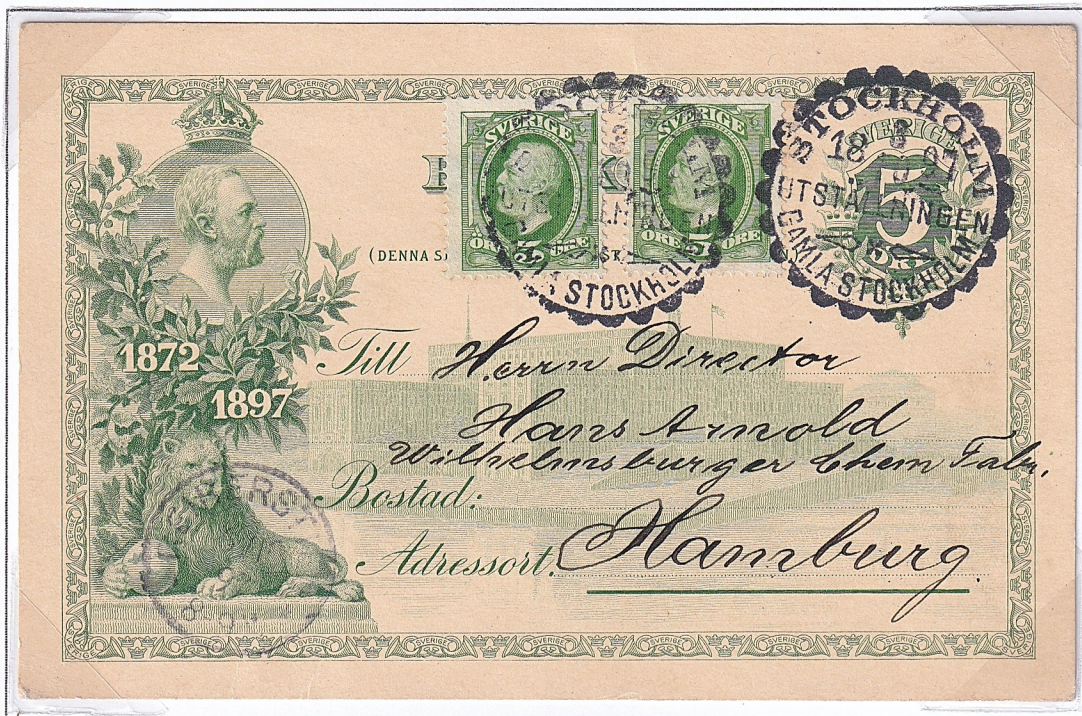 SVERIGE
SVERIGE
ÖRE 5 ÖRE
ÖRE 5 ÖRE
STOCKHOLM
SVERIGE
18
97
5
UTSTÄLLNINGEN
GAMLA STOCKHOLM
STOCKHOLM
(DENNA
1872
1897
Till Herrn Director
Hans Arnold
Wilhelmsburger Chem Fabr.
Bostad:
Adressort: Hamburg.